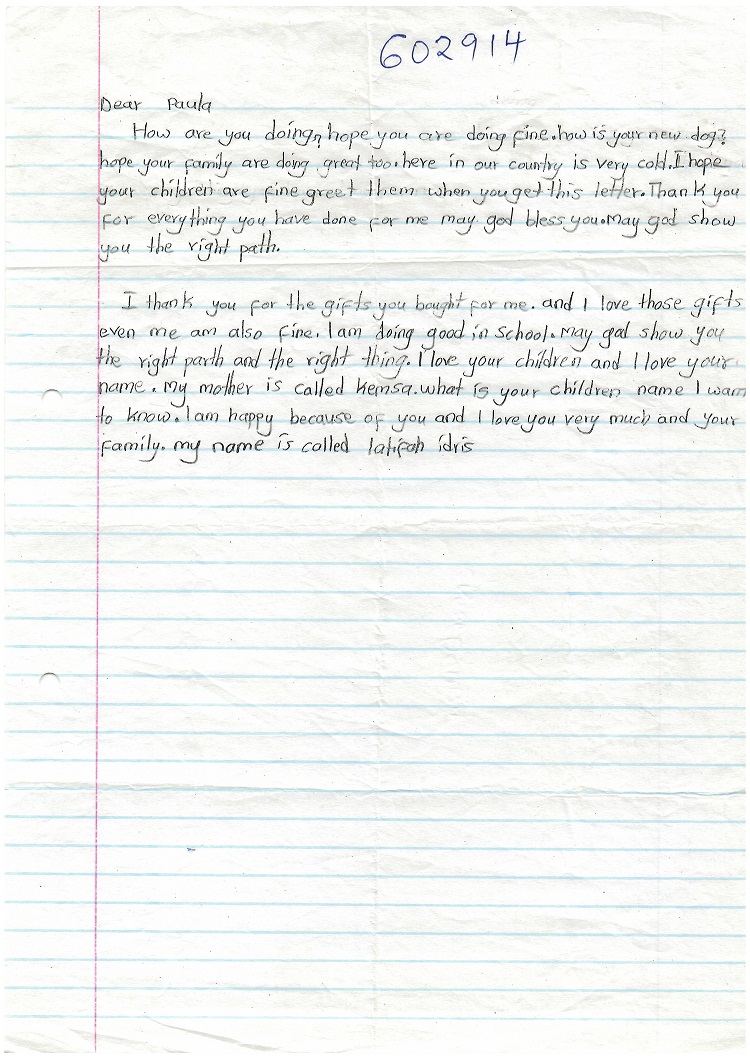 602914
Dear Paula
How are you doing, hope you are doing fine. how is your new dog?
hope your family are doing great too. here in our country is very cold. I hope
your children are fine greet them when you get this letter. Thank you
for everything you have done for me may god bless you. May god show
you the right path.
I thank you for the gifts you bought for me. and I love those gifts
even me am also fine. I am doing good in school. May god show you
the right parth and the right thing. I love your children and I love your
name. my mother is called Kemsa. what is your children name I wan
to know. I am happy because of you and I love you very much and your
family. my name is called latifah idris